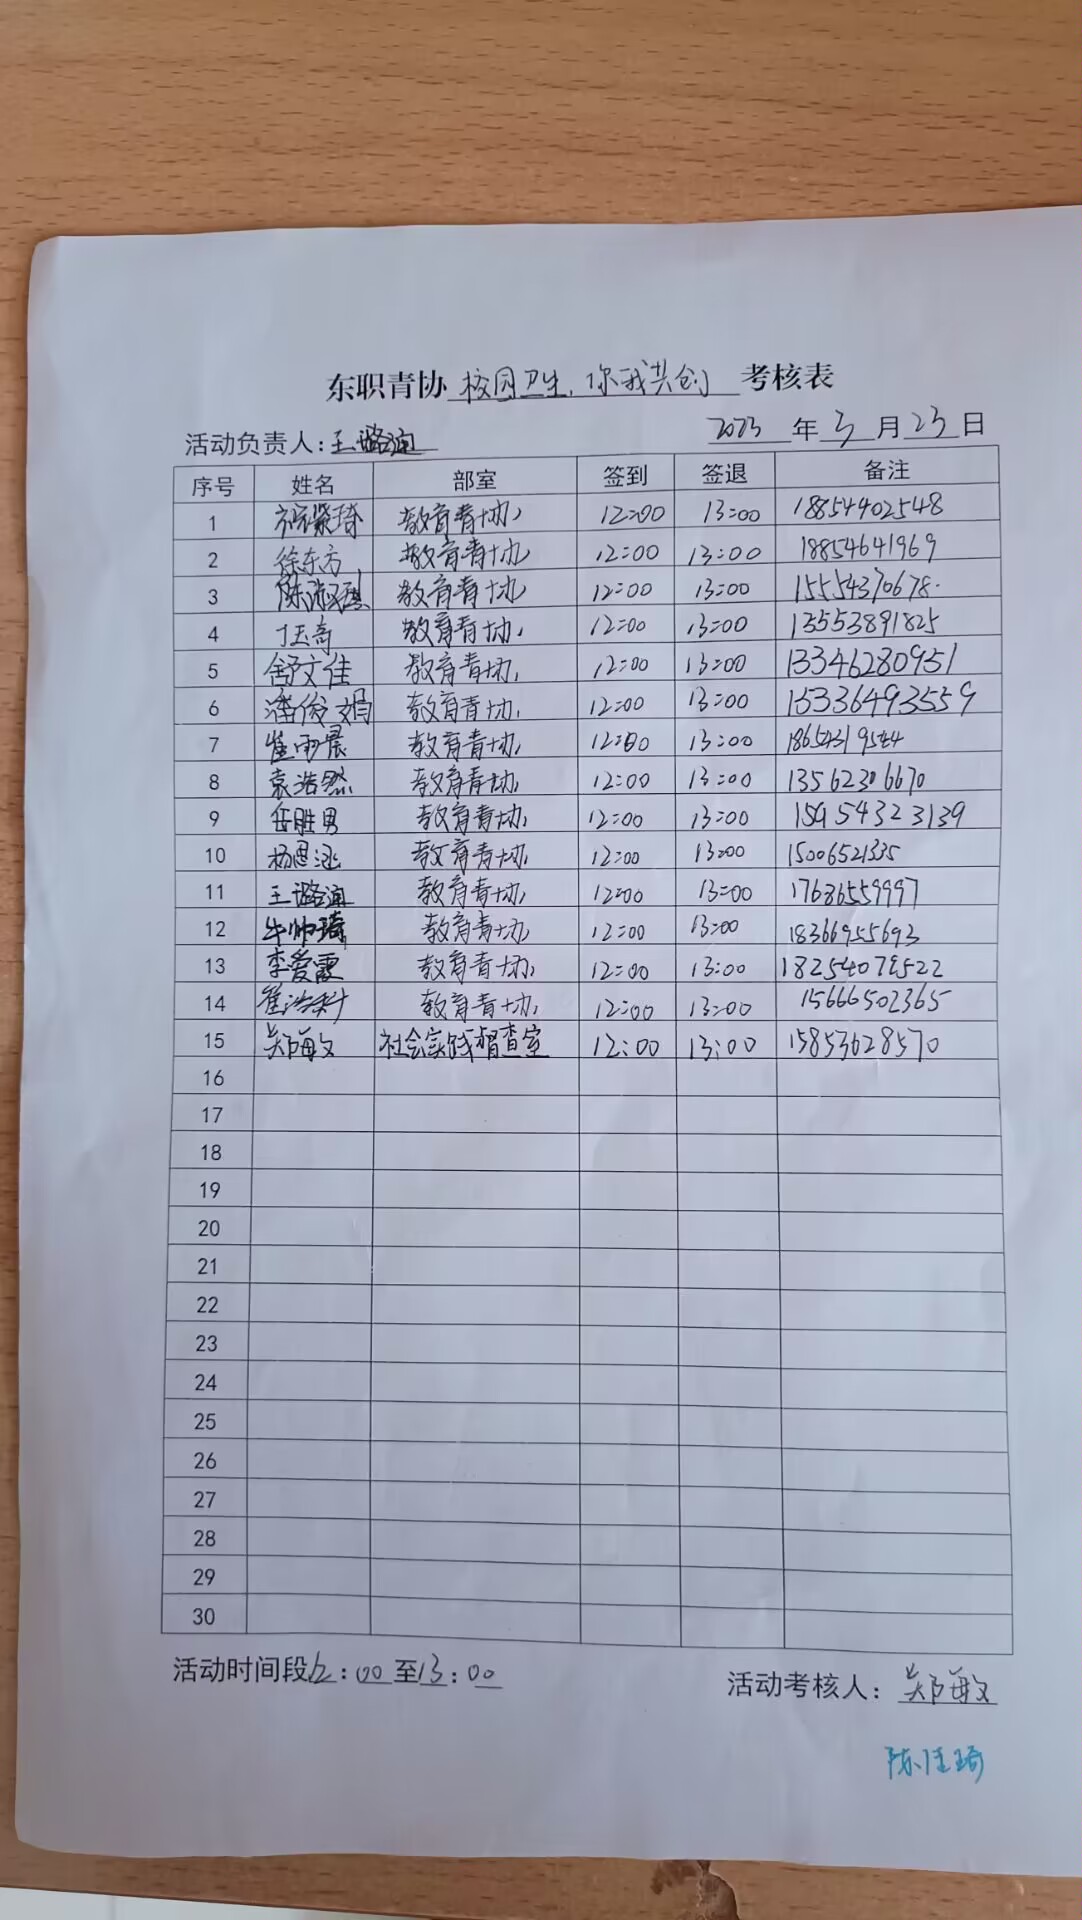 东职青协 校园卫生,你我共创 考核表
活动负责人:王璐涵 2023 年 3 月 23 日
序号 姓名 部室 签到 签退 备注
1 祝紫琦 教育青协 12:00 13:00 18854402548
2 徐东方 教育青协 12:00 13:00 18854641969
3 陈淑琪 教育青协 12:00 13:00 15554370678
4 丁玉奇 教育青协 12:00 13:00 13553891825
5 舒文佳 教育青协 12:00 13:00 13346280951
6 潘俊娟 教育青协 12:00 13:00 15336493559
7 崔雨晨 教育青协 12:00 13:00
8 袁浩然 教育青协 12:00 13:00 13562306670
9 岳胜男 教育青协 12:00 13:00 15954323139
10 杨思涵 教育青协 12:00 13:00 15006521335
11 王璐涵 教育青协 12:00 13:00 17686559997
12 牛帅琦 教育青协 12:00 13:00 18366955693
13 李爱霞 教育青协 12:00 13:00
14 教育青协 12:00 13:00 15666502365
15 郑敏 社会实践督查室 12:00 13:00 15853628570
16
17
18
19
20
21
22
23
24
25
26
27
28
29
30
活动时间段12:00至13:00 活动考核人:郑敏
陈佳琦